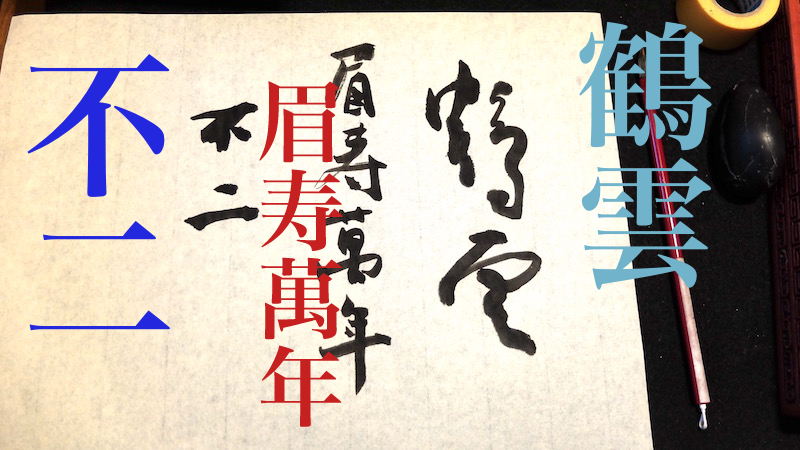 鶴雲
鶴雲
眉寿萬年
眉寿萬年
不二
不二